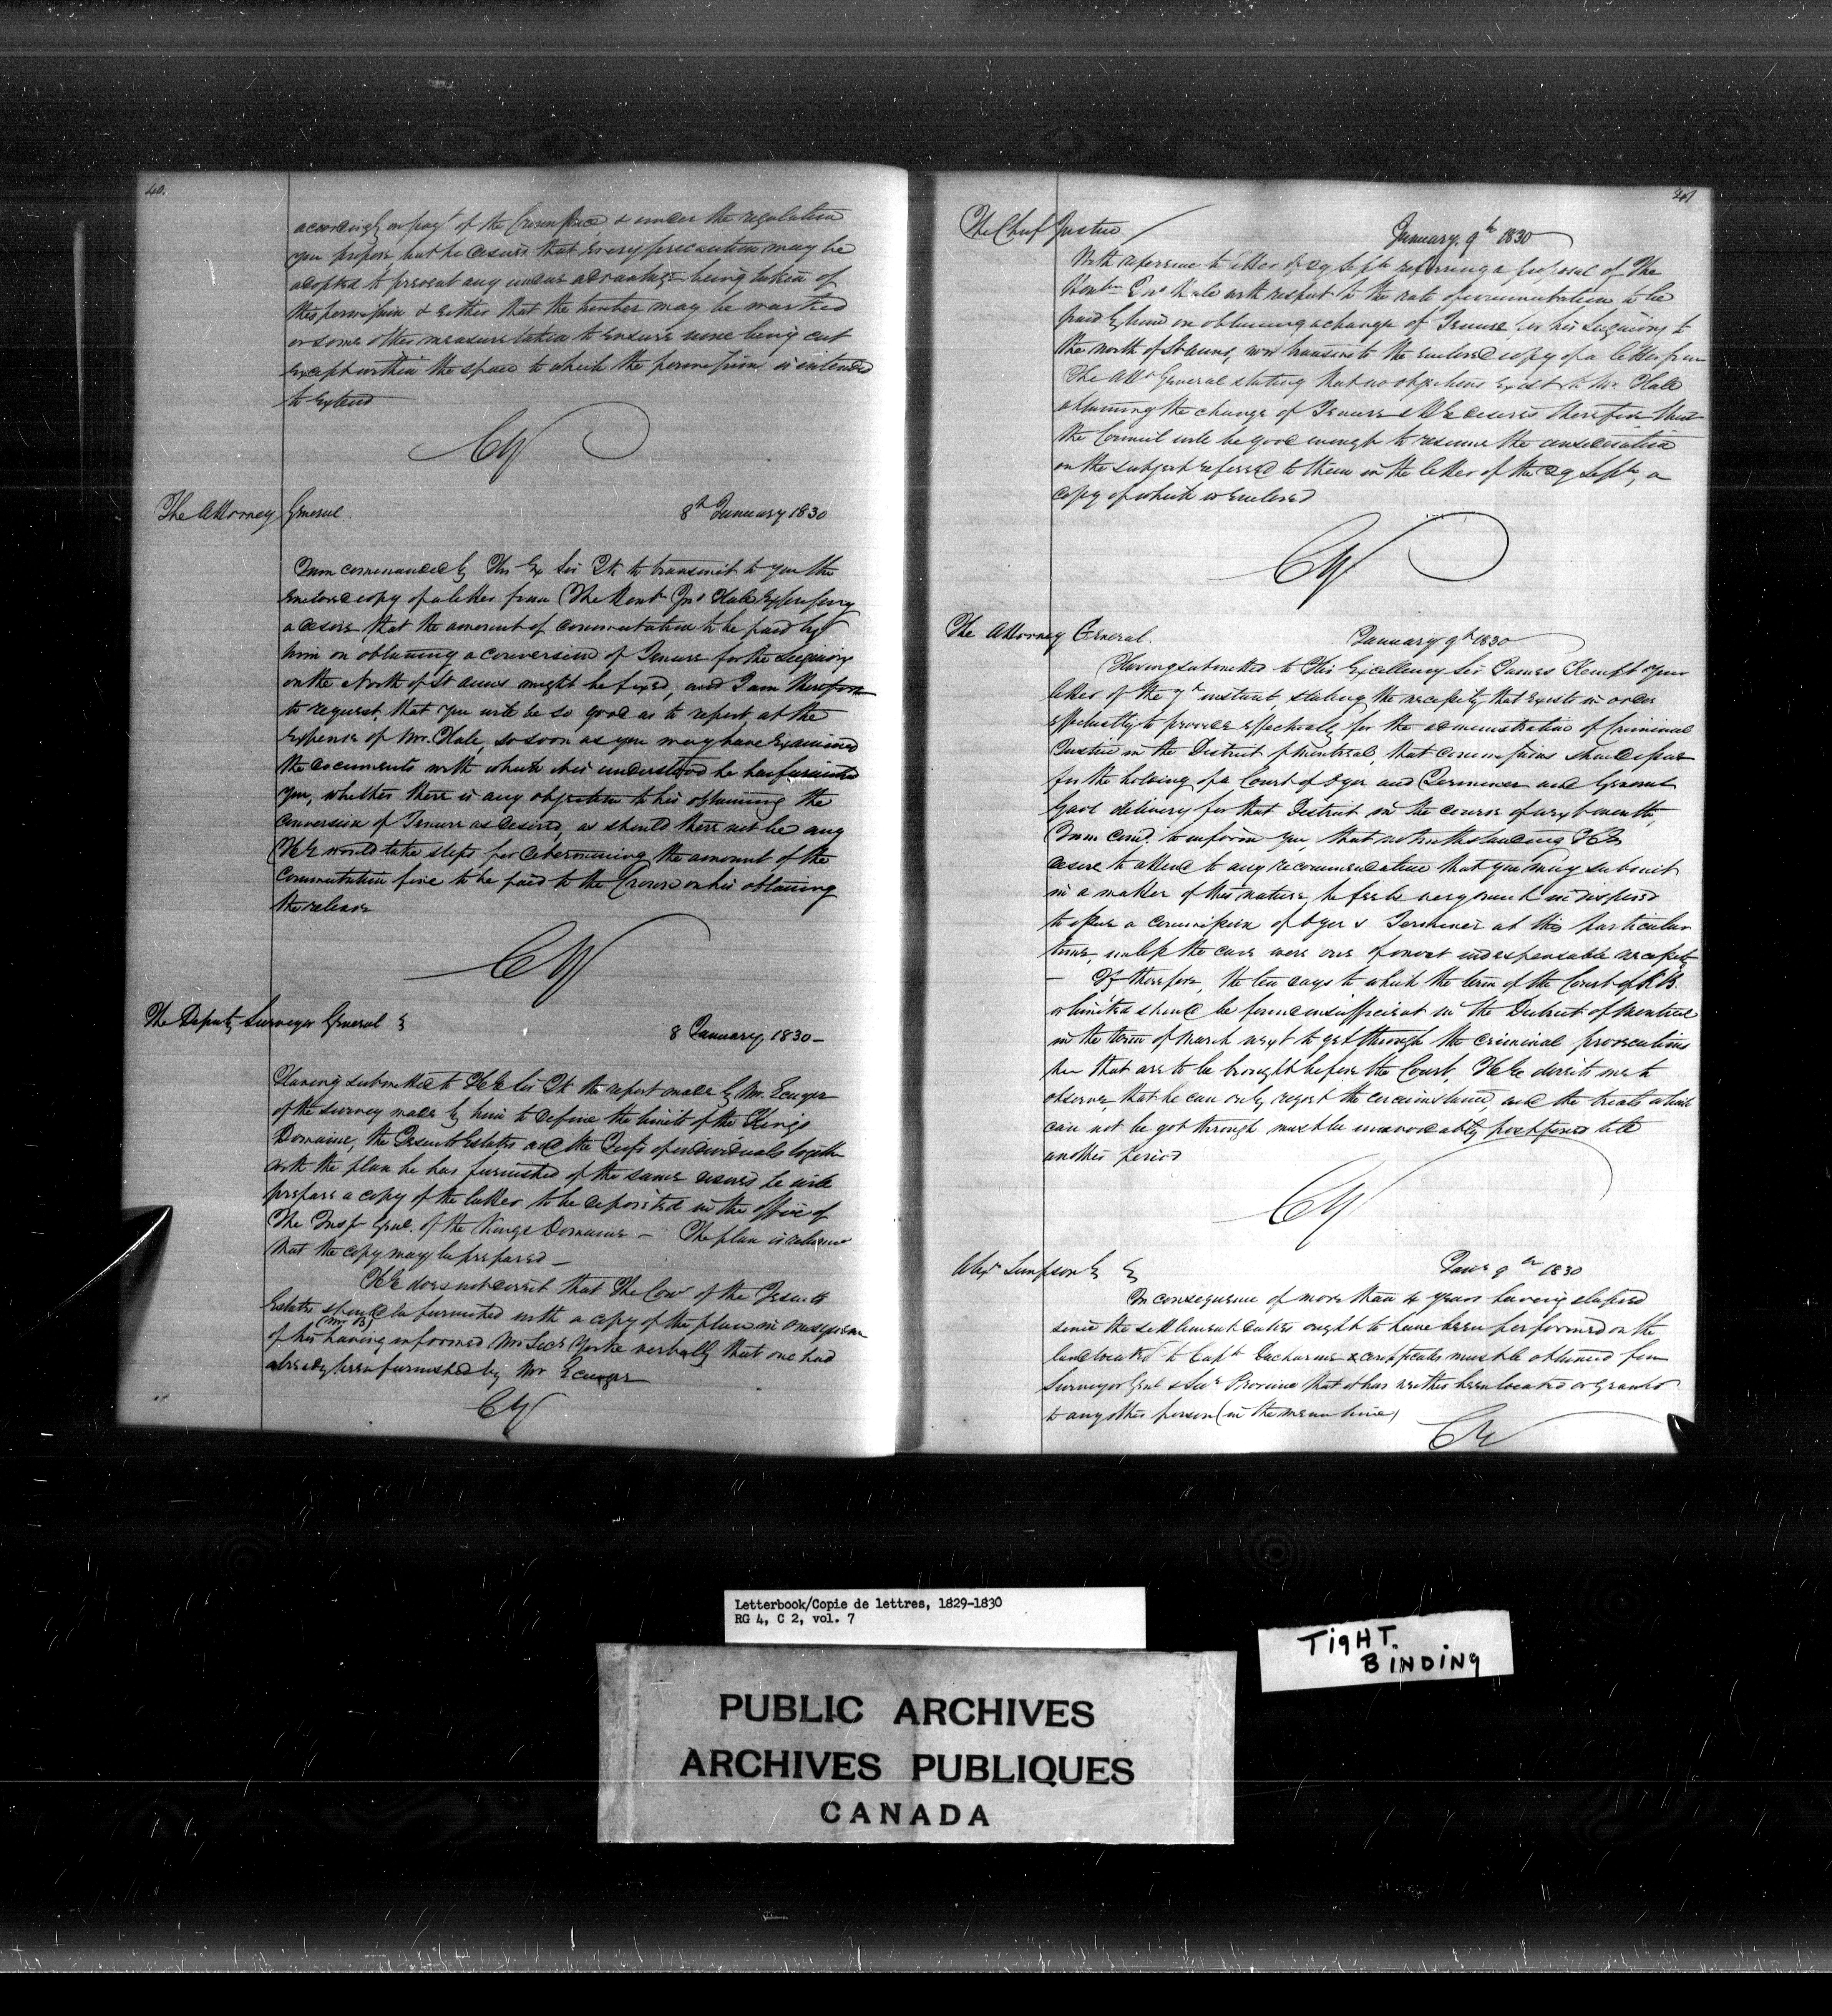 40.
accordingly on pay.t of the Crown price, & under the regulation
you propose but he desires that every precaution may be
adopted to prevent any undue advantage being taken of
this permission & either that the timber may be marked
or some other measure taken to ensure none being cut
except within the space to which the permission is intended
to extend
CY
The Attorney General.
8th January 1830
I am commanded by His Ex Sir Jk to transmit to you the
enclosed copy of a letter from The Honble Jno Hale expressing
a desire that the amount of commutation to be paid by
him on obtaining a conversion of Tenure for the Seigniory
on the North of St Anns might be fixed, and I am therefore
to request, that you will be so good as to report, at the
expense of Mr. Hale, so soon as you may have examined
the documents with which it is understood he has furnished
you, whether there is any objection to his obtaining the
conversion of Tenure as desired, as should there not be any
HE would take steps for determining the amount of the
commutation fine to be paid to the Crown on his obtaining
the release
CY
The Deputy Surveyor General &
8 January, 1830 –
Having submitted to HE Sir Jk the report made by Mr. Ecuyer
of the survey made by him to define the limits of the Kings
Domaine, the Jesuits Estates, and the Fiefs of individuals together
with the plan he has furnished of the same desires he will
prepare a copy of the latter to be deposited in the office of
The Insp Genl. of the Kings Domaine – The plan is returned
that the copy may be prepared –
HE does not direct that the Comr of the Jesuits
Estates should be furnished with a copy of the plan in consequence
of his (Mr B) having informed Mr Secy Yorke verbally that one had
already been furnished by Mr Ecuyer
CY
41
The Chief Justice
January, 9th 1830
With reference to letter of 29 Septr referring a proposal of The
Honble Jno Hale with respect to the rate of commutation to be
paid by him on obtaining a change of Tenure for his Seigniory to
the north of St Anns, now transmits the enclosed copy of a letter from
The Atty General stating that no objections exist to Mr. Hale
obtaining the change of Tenure & HE desires therefore that
the Council will be good enough to resume the consideration
on the subject referred to them in the letter of the 29 Septr, a
copy of which is enclosed
CY
The Attorney General.
January 9th 1830
Having submitted to His Excellency Sir James Kempt your
letter of the 7th instant, stating the necessity that exists in order
effectually to provide effectually for the administration of Criminal
Justice in the District of Montreal, that commissions should issue
for the holding of a Court of Oyer and Terminer and General
Gaol delivery for that District in the course of next month,
I am comd. to inform you, that notwithstanding HEs
desire to attend to any recommendation that you may submit
in a matter of this nature, he feels very much indisposed
to issue a commission of Oyer & Terminer at this particular
time, unless the case were one of most indispensable necessity
– If therefore, the ten days to which the term of the Court of K.B.
is limited should be found insufficient in the District of Montreal
in the term of March next to get through the criminal prosecutions
that are to be brought before the Court, HE directs me to
observe, that he can only regret the circumstance, and the trials which
can not be got through must be unavoidably postponed till
another period
CY
Alexr Simpson &
Jany 9th 1830
In consequence of more than 4 years having elapsed
since the settlement duties ought to have been performed on the
land located to Capt Ducharme a certificate must be obtained from
Surveyor Genl & Secy Province that it has neither been located or granted
to any other person (in the mean time)
CY
Letterbook/Copie de lettres, 1829-1830
RG 4, C 2, vol. 7
TIGHT.
BINDING
PUBLIC ARCHIVES
ARCHIVES PUBLIQUES
CANADA